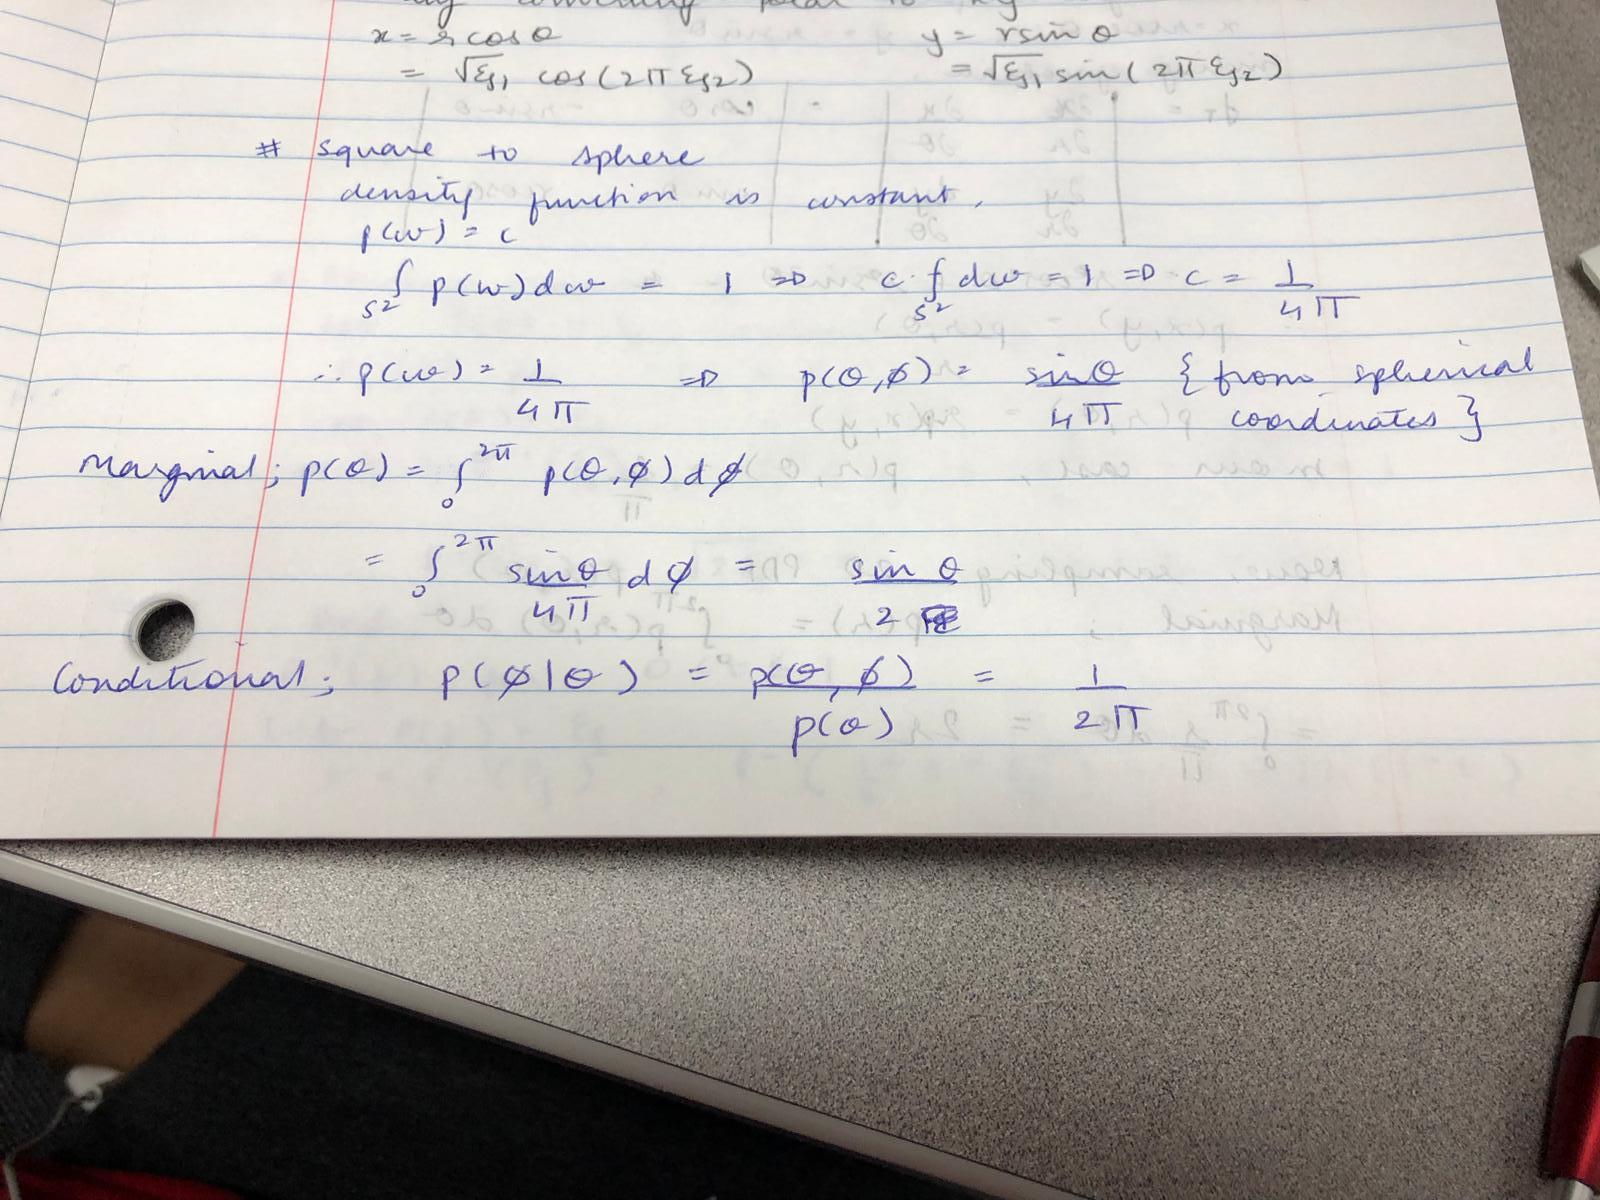 x = r cos θ y = r sin θ
= √ξ₁ cos(2π ξ₂) = √ξ₁ sin(2π ξ₂)
# square to sphere
density function is constant.
p(ω) = c
∫_S² p(ω) dω = 1 ⇒ c · ∫_S² dω = 1 ⇒ c = 1/4π
∴ p(ω) = 1/4π ⇒ p(θ, φ) = sin θ/4π { from spherical
coordinates }
Marginal ; p(θ) = ∫₀^2π p(θ, φ) dφ
= ∫₀^2π sin θ/4π dφ = sin θ/2
Conditional ; p(φ|θ) = p(θ, φ)/p(θ) = 1/2π